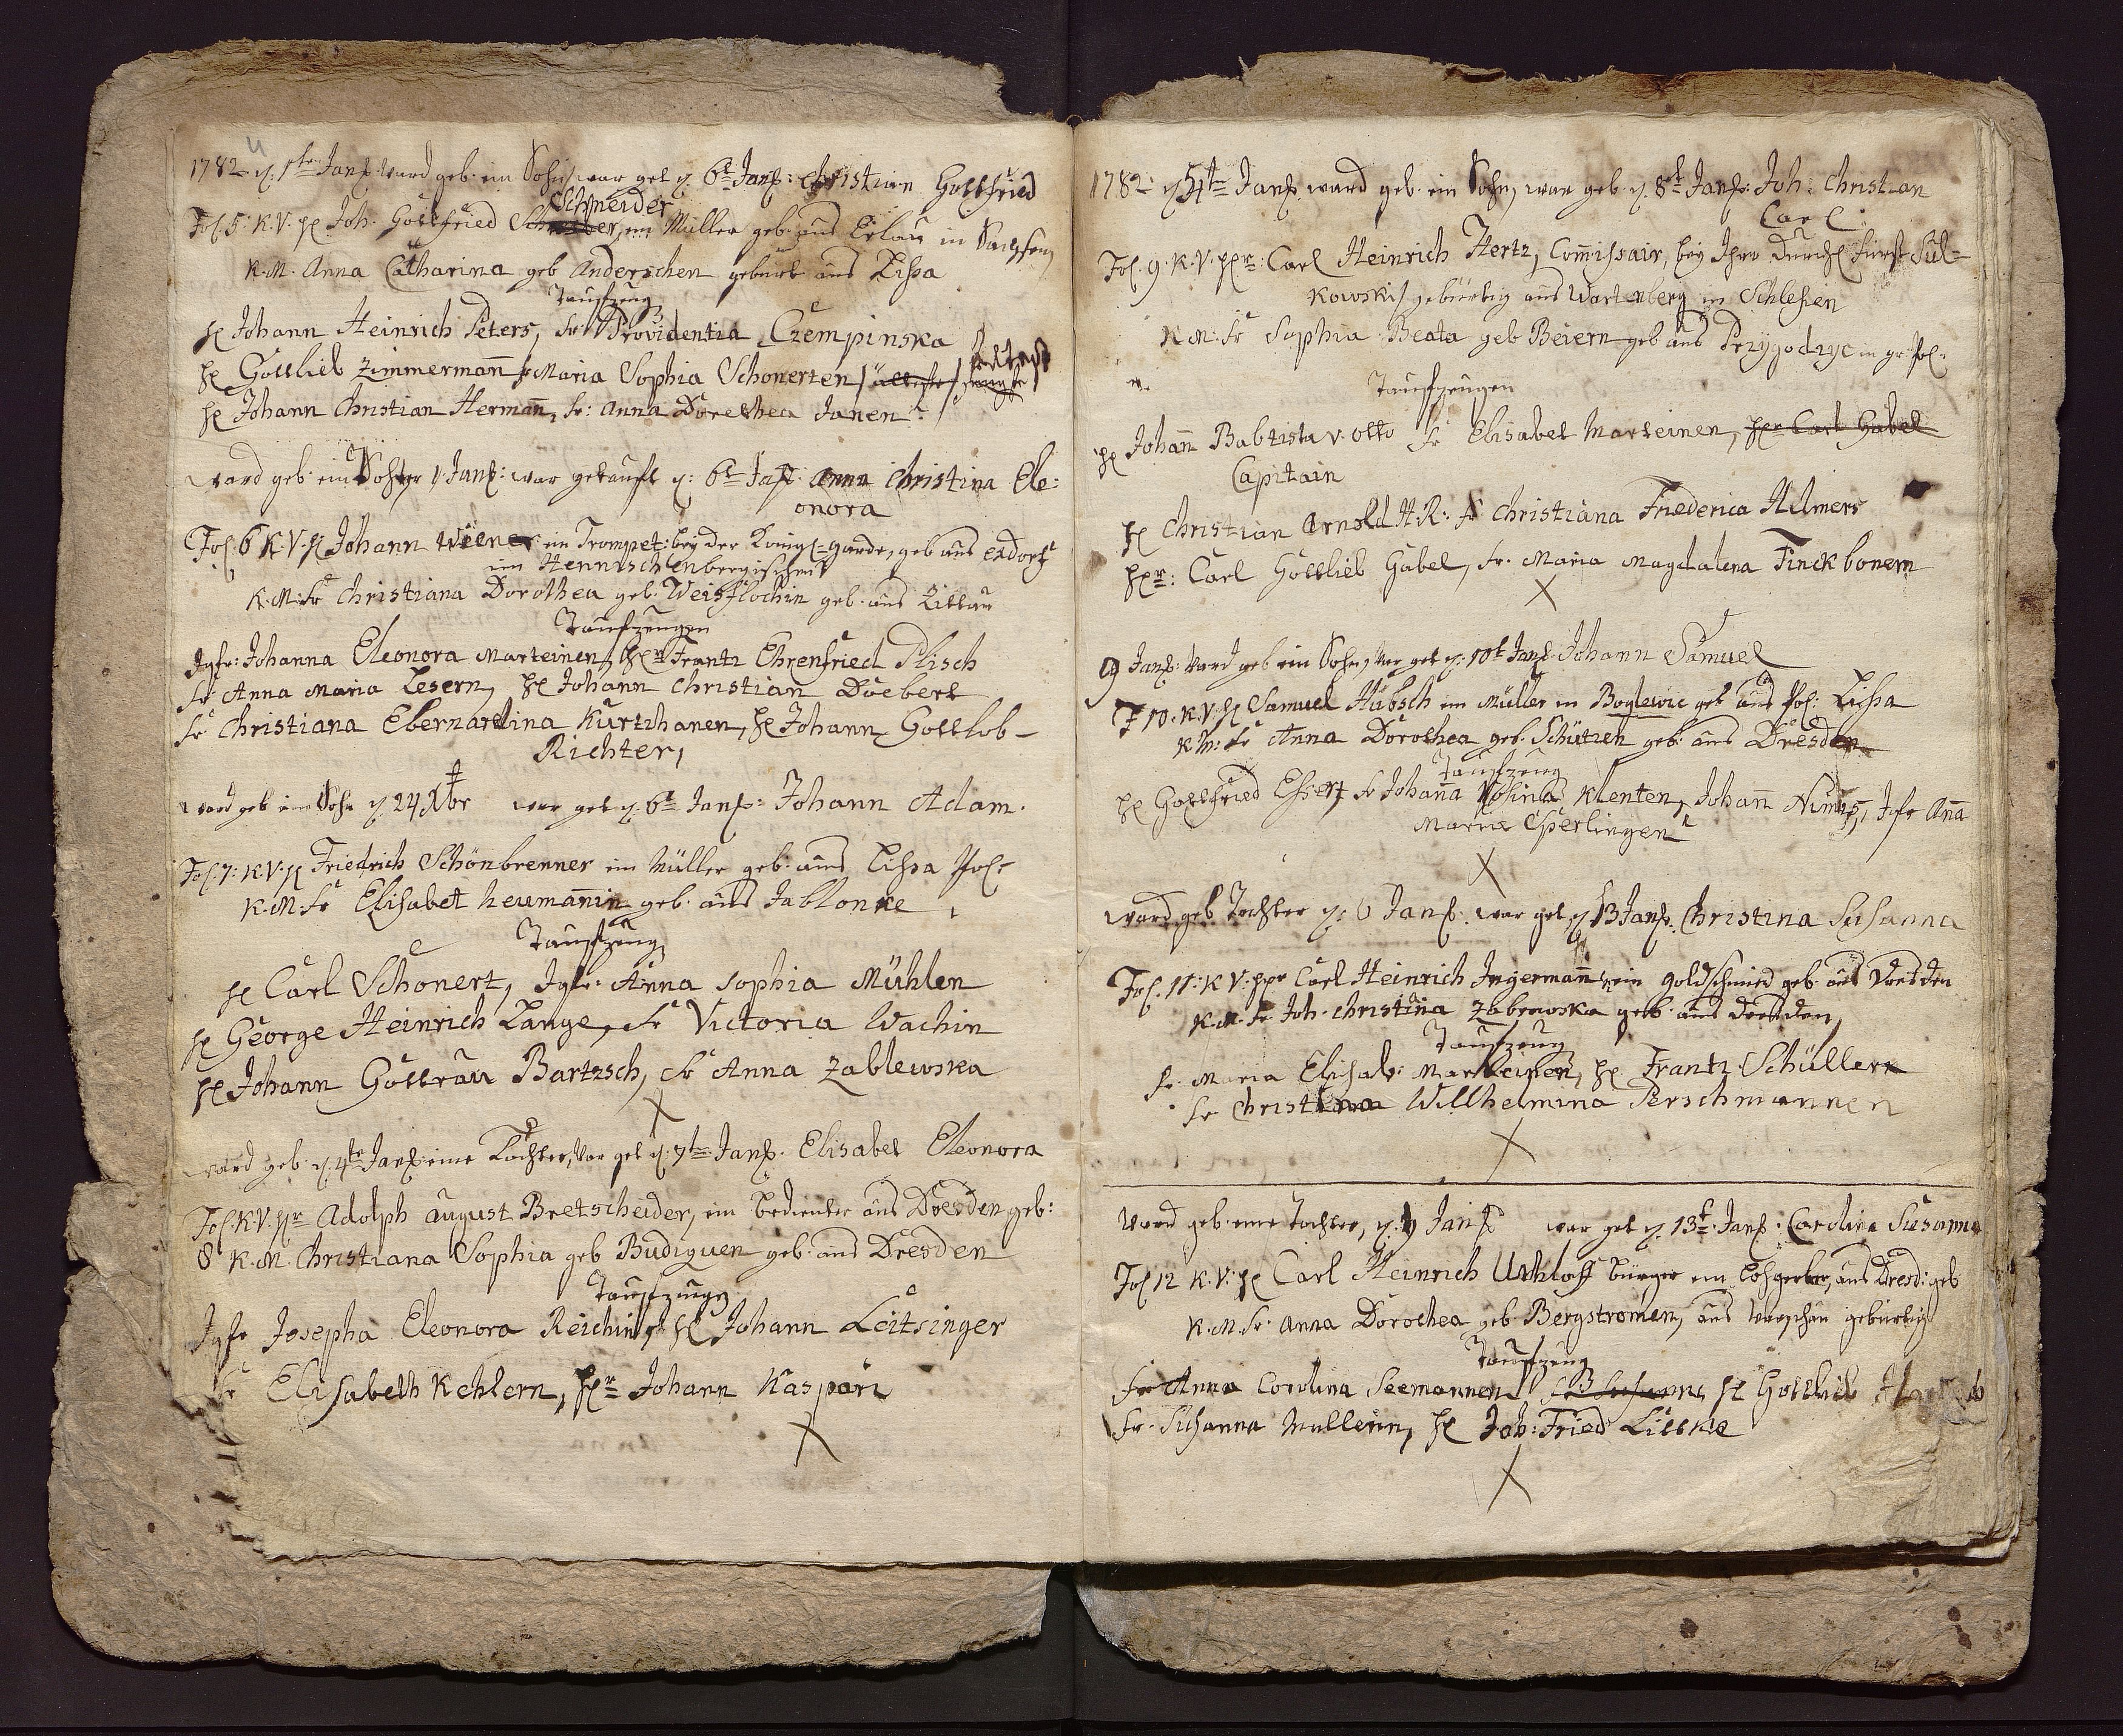 1782 d. 1ten Janr. ward geb. ein Sohn, war get d. 6t Janr: Christian Gottfried
Schneider
Fol. 5: K. V. H Joh. Gottfried ein Müller geb. aus Erlau in Sachsen
K. M. Anna Catharina geb Anderschen geburt aus Lissa
Taufzeug
H Johann Heinrich Peters, Fr Providentia Czempinska
H Gottlieb Zimmermañ Fr Maria Sophia Schonerten
H Johann Christian Hermañ, Fr: Anna Dorethea Janen
ward geb. ein Tochter 1 Janr: war getauft d. 6t Jan Anna Christina Ele:
onora
Fol. 6 K. V. H Johann Wiener ein Trompet: bey der Königl=garde, geb aus
im
K. M: Fr Christiana Dorothea geb. Weisflochin geb. aus Zittau
Taufzeugen
Jgfr: Johanna Eleonora Marteinen, Hr Frantz Ehrenfried Plisch
Fr Anna Maria Lesern, H Johann Christian Doebert
Fr Christiana Ebernardina Kurtzhanen, H Johann Gottlob -
Richter,
ward geb ein Sohn d. 24 Xbr war get d. 6t Janr: Johann Adam.
Fol. 7: K. V. H Friedrich Schönbrenner ein Müller geb. aus Lissa Pol
K. M. Fr Elisabet Neumañin geb. aus Jablonke
Taufzeug
H Carl Schonert, Jgfr: Anna Sophia Mühlen
H George Heinrich Lange, Fr Victoria Wachin
H Johann Gottrau Bartzsch, Fr Anna Zablewska
X
ward geb. d. 4te Janr. eine Tochter, war get d. 7te Janr. Elisabet Eleonora
Fol. K. V. Hr Adolph August Bretscheider, ein bedienter aus Dresden geb:
8 K. M. Christiana Sophia geb Budiguen geb. aus Dresden
Taufzeug
Jgfr Josepha Eleonora Reichin, H Johann Leitsinger
Fr Elisabeth Kehlern, Hr Johann Kaspari
X
1782 d 4te Janr. ward geb. ein Sohn, war geb. d. 8t Janr. Joh: Christian
Carl
Fol. 9. K. V. Hr: Carl Heinrich Hertz, Com̃issair, bey Ihro Durchl Fürst Sul=
kowski gebürtig aus Wartenberg in Schlesien
K. M: Fr Sophia Beata geb Beiern geb aus Przygodzyc in gr. Pol.
Taufzeugen
H Johañ Babtista v. Otto Fr Elisabet Marteinen, Hr Carl Gabel
Capitain
H Christian Arnold H. R: Fr Christiana Friederica Hilmers
Hr: Carl Gottlieb Gabel, Fr. Maria Magdalena Finckbonem
X
9 Janr: ward geb ein Sohn, war get d: 10t Janr. Johann Samuel
F 10. K. V. H Samuel Häbsch ein Müller in Boglewic geb aus Pol: Lissa
K. M: Fr Anna Dorothea geb. Schützen geb. aus Dresden
Taufzeug
H Gottfried Fr Johaña Rosina Klenten, Johañ Jgfr Aña
Maria Sperlingen
X
ward geb Tochter d: 6 Janr. war get d 13 Janr. Christina Susanna
Fol. 11: K. V: Hr Carl Heinrich Ingermañ ein goldschmied geb. aus Dresden
K. M. Fr Joh. Christina Zabrowska geb. aus Dresden,
Taufzeug
Fr. Maria Elisab: Marteinen, H Frantz Schüller
Fr Christina Willhelmina Perschmannen
X
Ward geb. eine Tochter, d: 9 Janr war get d. 13t Janr: Carolina Susanna
Fol 12 K. V: H Carl Heinrich Uthloff bürger ein Lohgerber, aus Dresd: geb
K. M. Fr: Anna Dorothea geb. Bergstromen, aus Warschau gebürtig
Taufzeug
Fr Anna Corolina Seemannen H Gottlieb
Fr. Susanna Mullerin, H Joh: Fried Littke
X